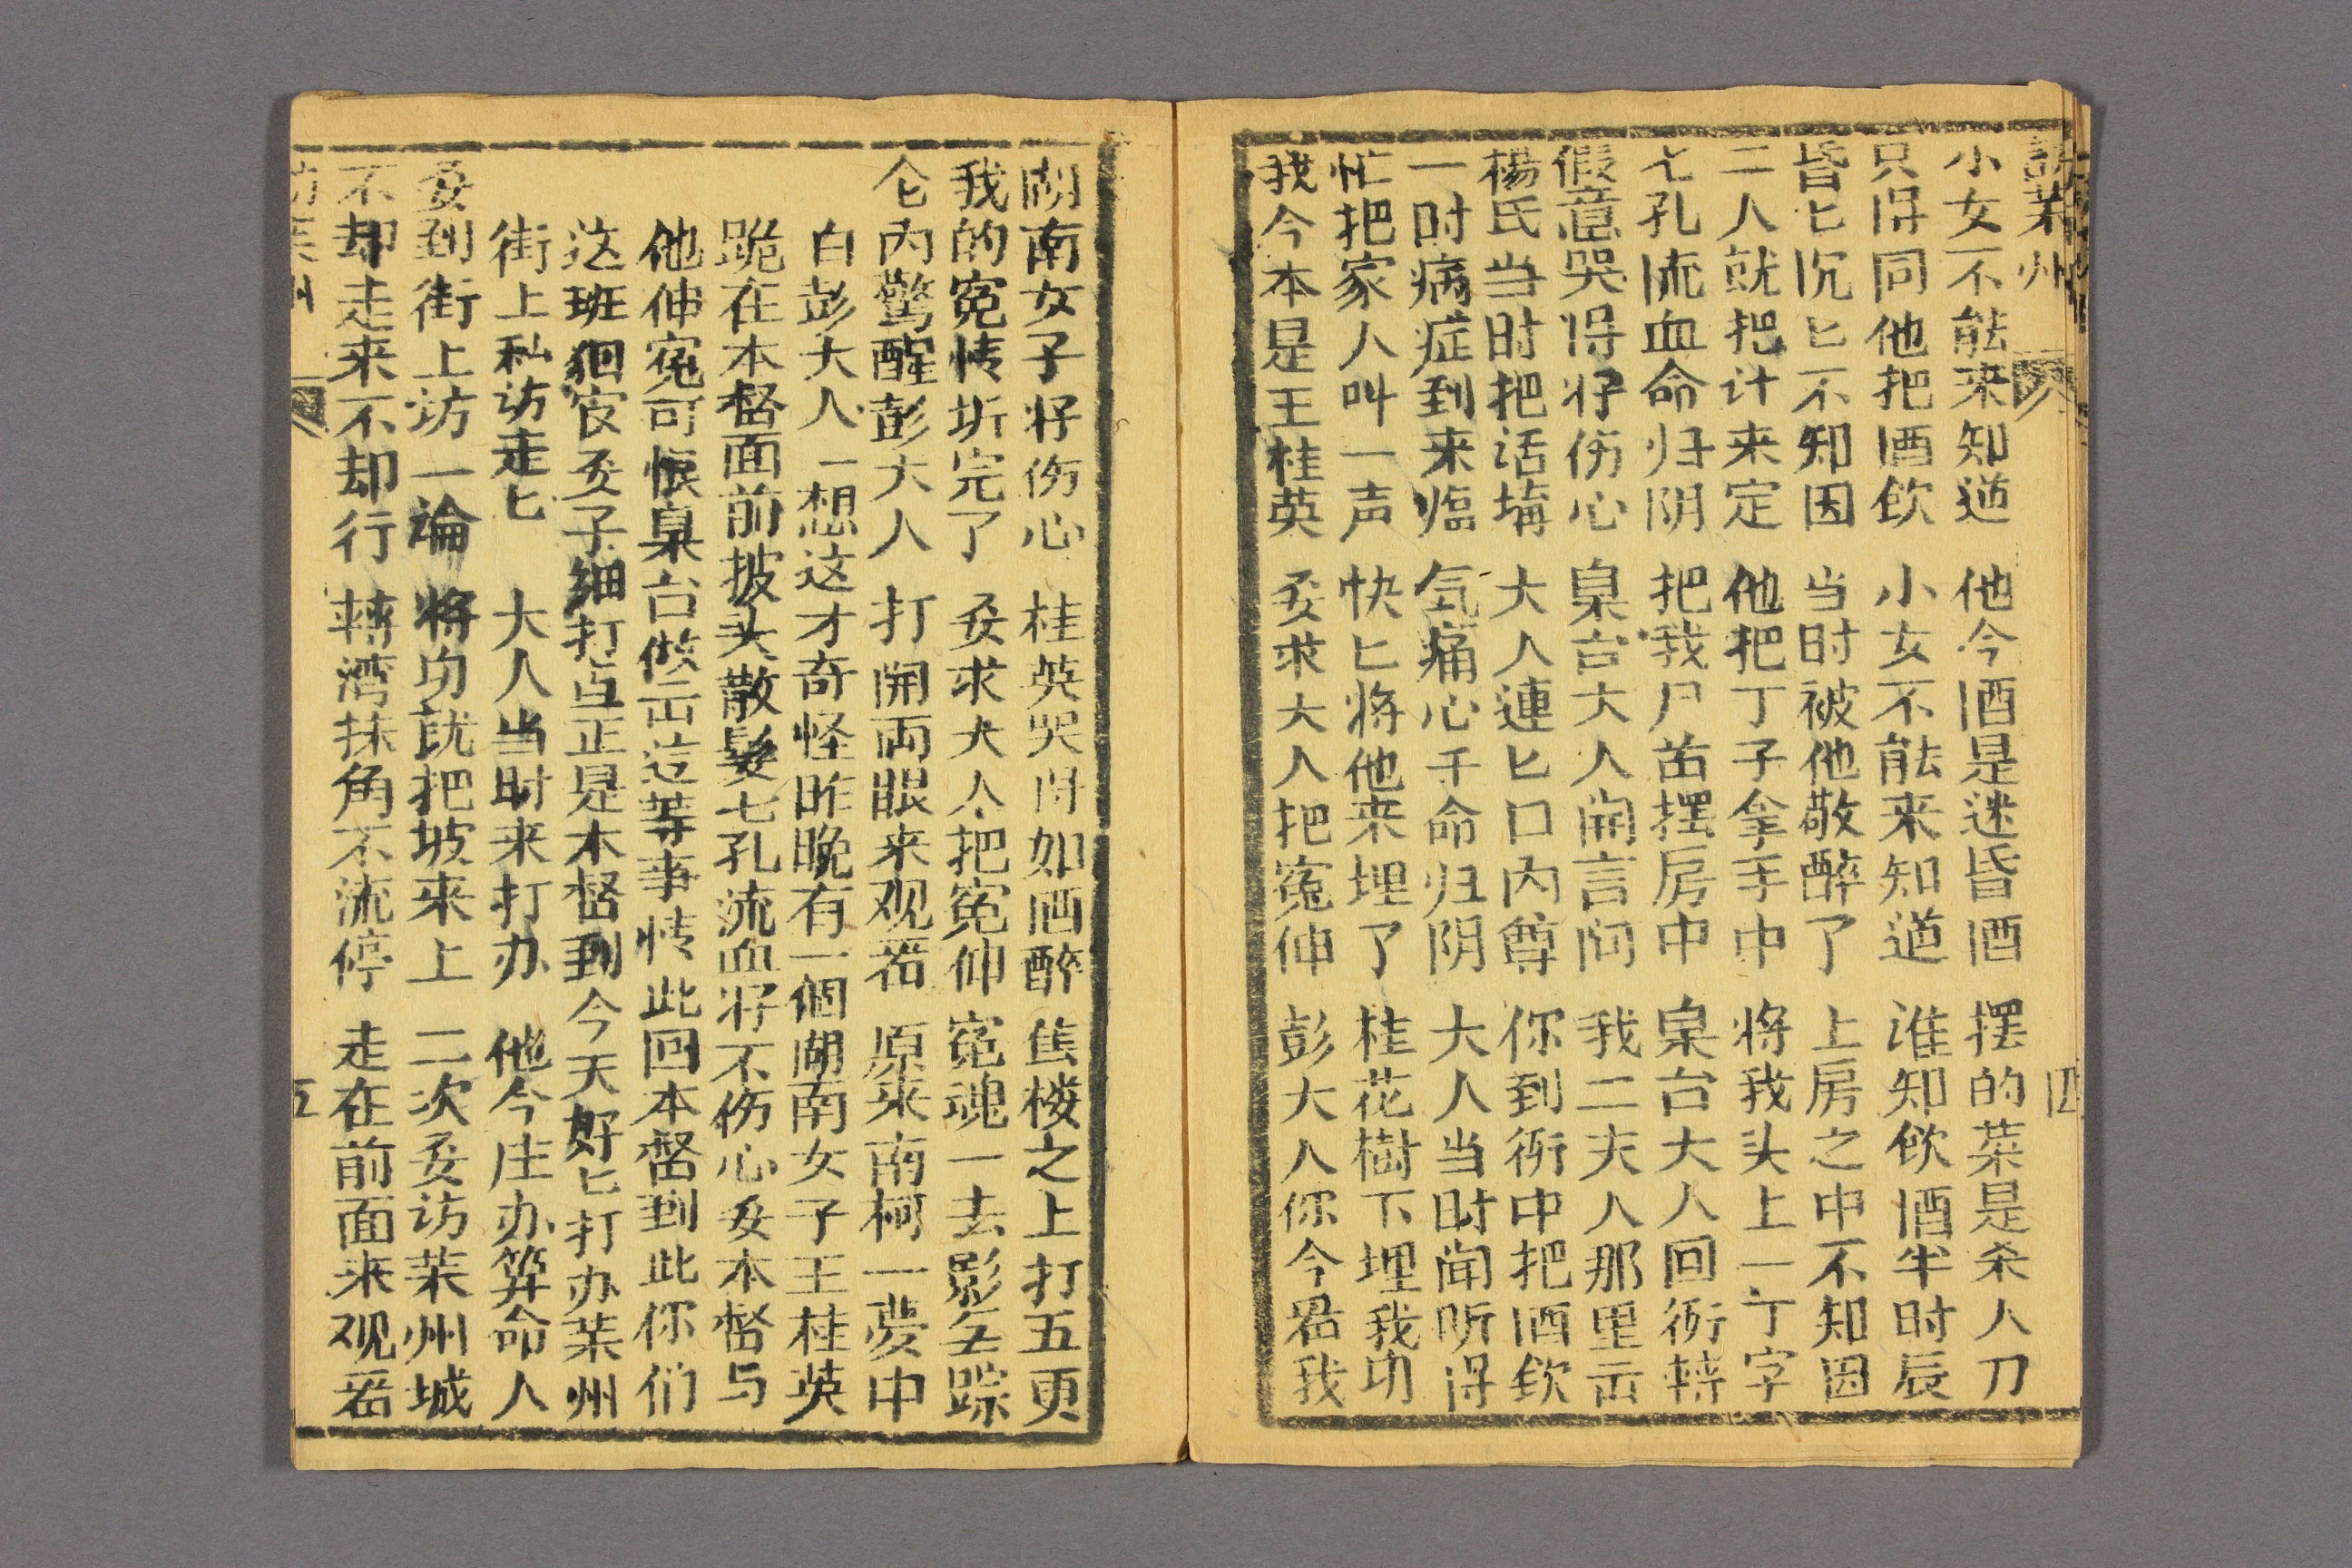 訪茉州 四
小女不能来知道 他今酒是迷昏酒 摆的菜是杀人刀
只得同他把酒飲 小女不能来知道 谁知飲酒半时辰
昏匕沉匕不知因 当时被他敬醉了 上房之中不知因
二人就把计来定 他把丁子拿手中 将我头上一丁字
七孔流血命归阴 把我尸首摆房中 臬台大人回衙轉
假意哭得好伤心 臬台大人開言问 我二夫人那里去
楊氏当时把话搆 大人連匕口内尊 你到衙中把酒飲
一时病症到来临 気痛心干命归阴 大人当时闻听得
忙把家人叫一声 快匕将他来埋了 桂花樹下埋我身
我今本是王桂英 要求大人把冤伸 彭大人你今君我
湖南女子好伤心 桂英哭得如酒醉 焦楼之上打五更
我的冤情訴完了 要求大人把冤伸 冤魂一去影无踪
仑内驚醒彭大人 打開両眼来观看 原来南柯一夢中
白彭大人一想这才奇怪昨晚有一個湖南女子王桂英
跪在本督面前披头散髮七孔流血好不伤心要本督与
他伸冤可恨臬台做出这等事情此回本督到此你们
这班狗官要子細打点正是本督到今天好匕打办茉州
街上私访走匕 大人当时来打办 他今庄办算命人
要到街上访一論 将身就把坡来上 二次要访茉州城
不却走来不却行 轉湾抹角不流停 走在前面来观看
訪茉州 五